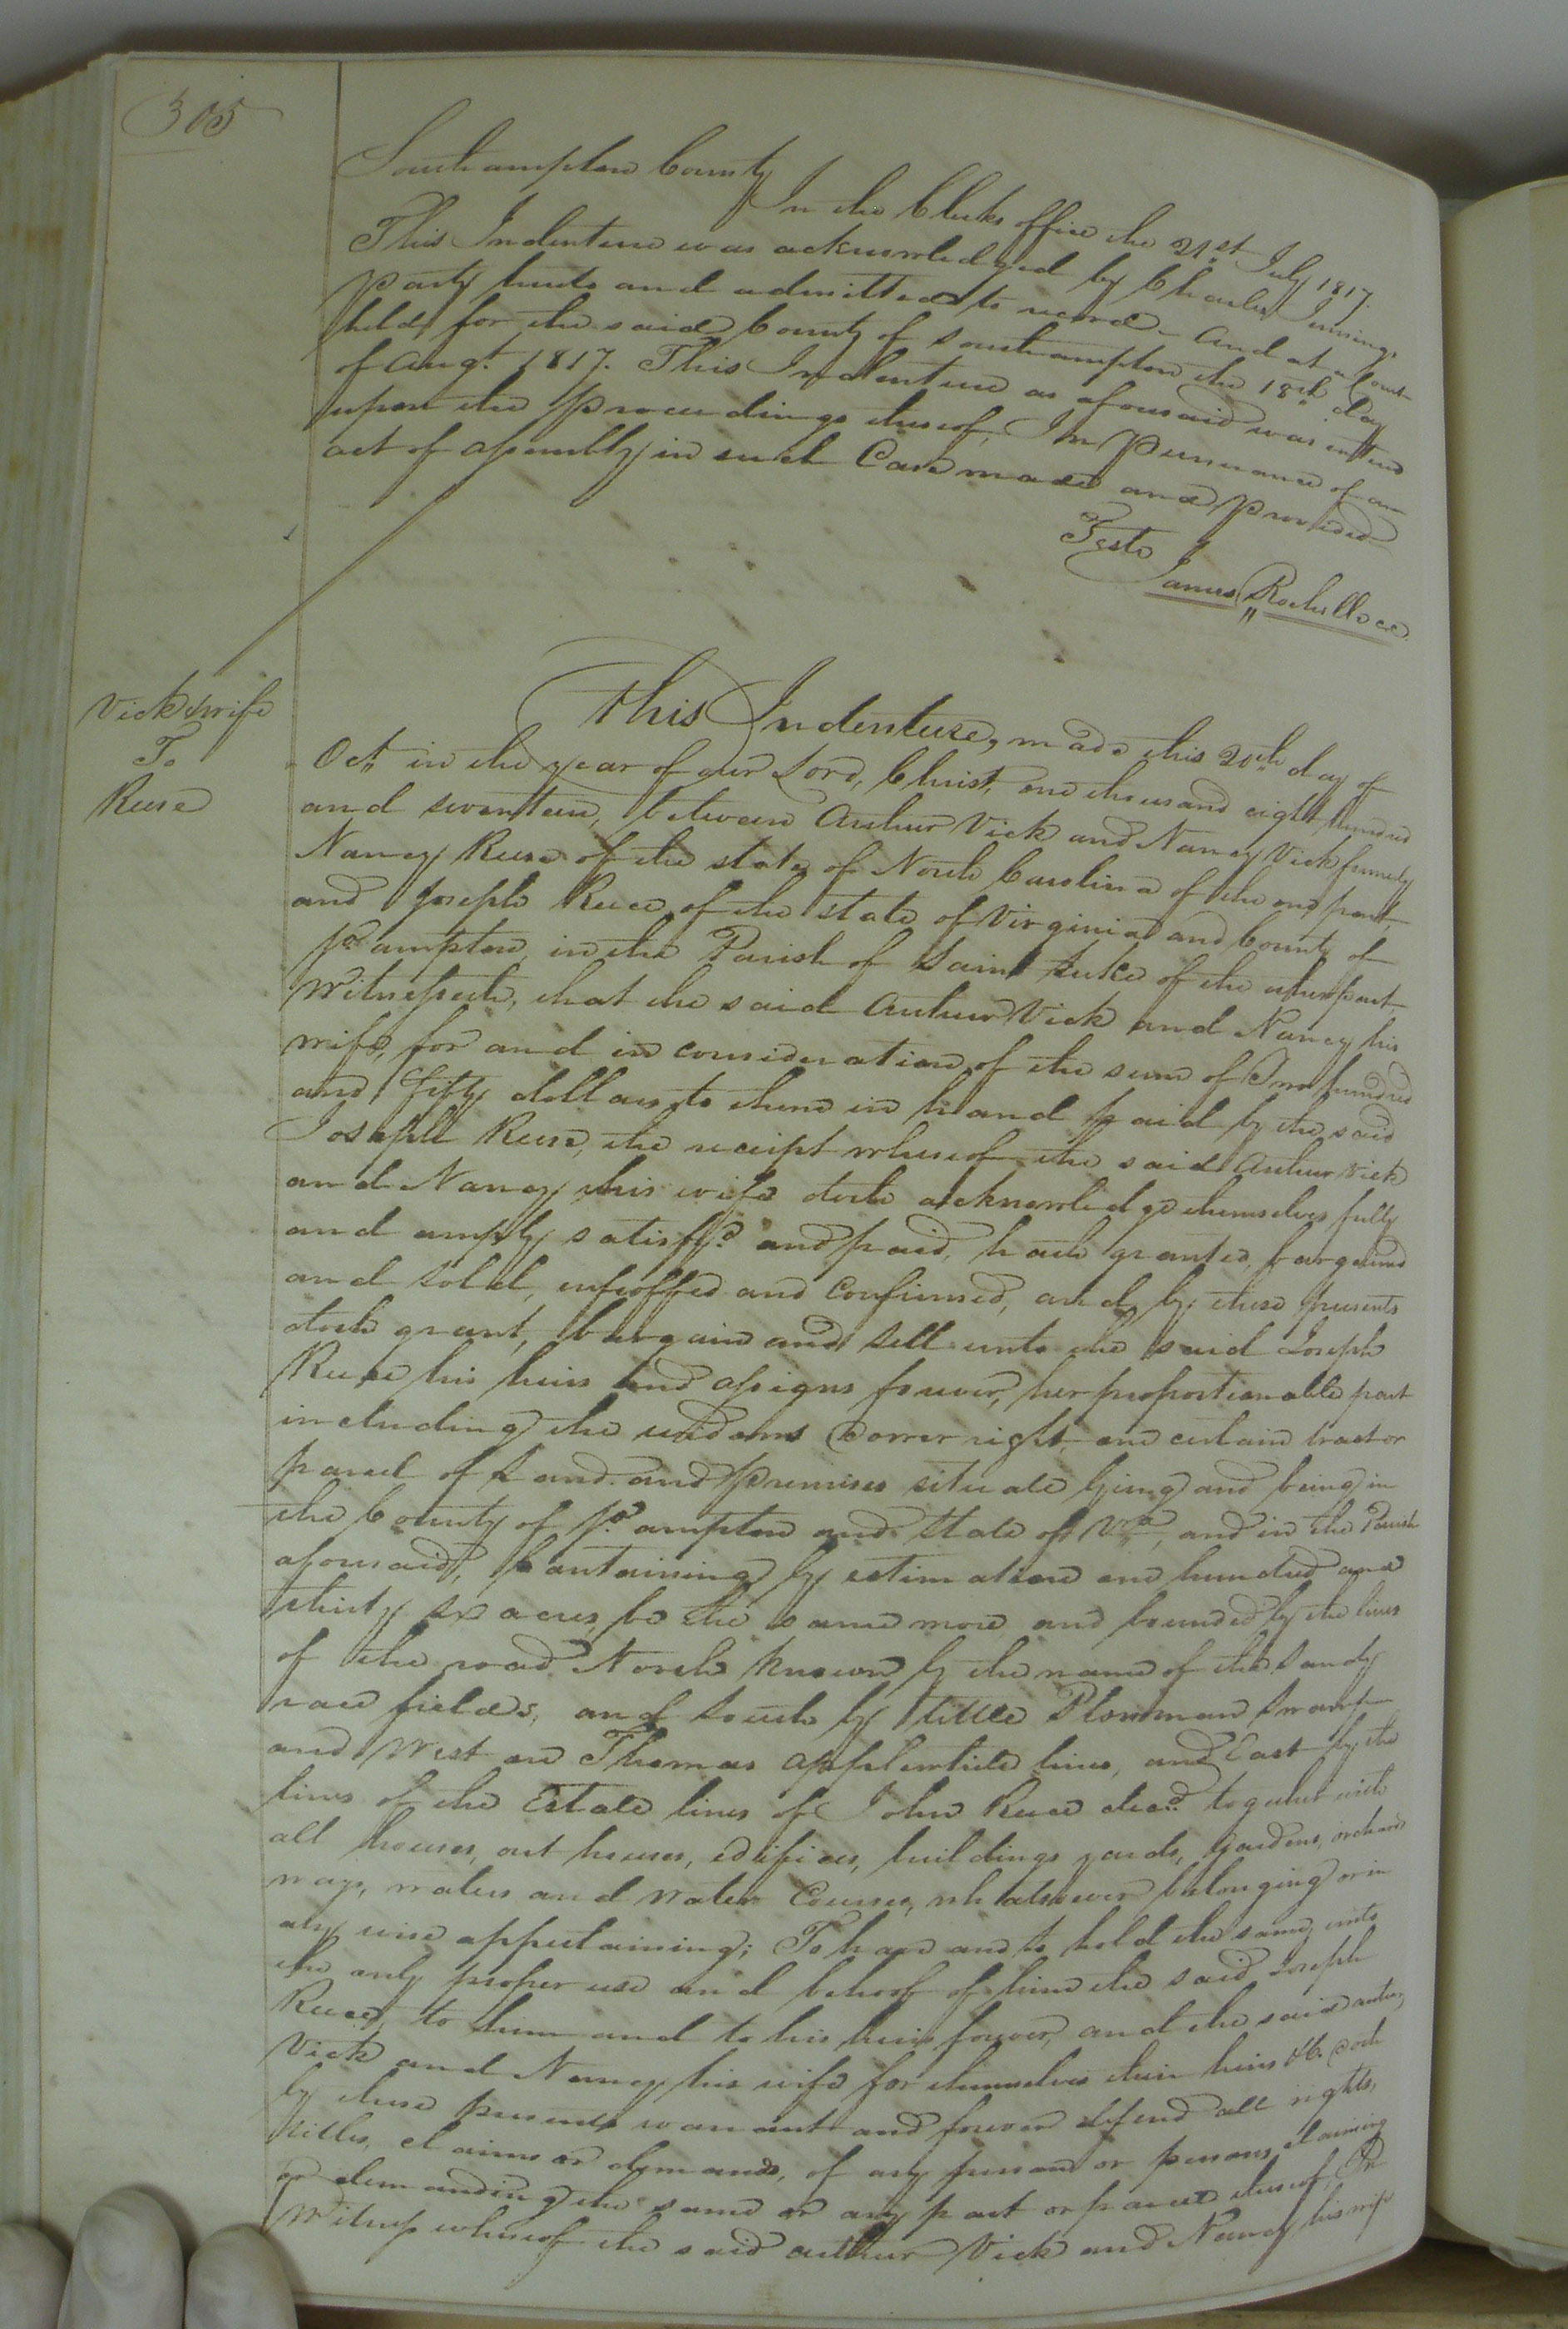 305
Southampton County
In the Clerks office the 21st July 1817.
This Indenture was acknowledged by Charles Jinnings
party hereto and admitted to record - And at a Court
held for the said County of Southampton the 18th day
of Augt. 1817. This Indenture as aforesaid was entered
upon the proceedings thereof, In Pursuance of an
act of assembly in such Case made and provided
Teste
James Rochelle cc
Vick & wife
To
Reese
This Indenture, made this 20th day of
Oct. in the year of our Lord, Christ, one thousand eight hundred
and seventeen, between Arthur Vick and Nancy Vick formerly
Nancy Reese of the state of North Carolina of the one part,
and Joseph Reese of the state of Virginia and County of
So.ampton, in the Parish of Saint Luke of the other part,
Witnesseth, that the said Arthur Vick and Nancy his
wife, for and in consideration of the sum of One hundred
and fifty dollars, to them in hand paid by the said
Joseph Reese, the receipt whereof the said Arthur Vick
and Nancy his wife doth acknowledge themselves fully
and amply satisfyd. and paid, hath granted, bargained
and sold, enfeoffed and confirmed, and by these presents
doth grant, bargain and sell unto the said Joseph
Reese his heirs and assigns forever, her proportionable part
including the widows Dower right, one certain tract or
parcel of Land and premises situate lying and being in
the County of So.ampton and State of Va., and in the Parish
aforesaid, containing by estimation one hundred and
thirty six acres, be the same more, and bounded by the lines
of the road North known by the name of the Sandy
race fields, and South by little Plowman Swamp
and West on Thomas Applewhite lines, and East by the
lines of the Estate lines of John Reese decd. together with
all houses, out houses, edifices, buildings yards, Gardens, orchards
ways, waters and water Courses, whatsoever belonging or in
any wise appertaining; To have and to hold the same, unto
the only proper use and behoof of him the said Joseph
Reese, to him and to his heirs forever, and the said Arthur
Vick and Nancy his wife for themselves their heirs &c. doth
by these presents warrant and forever defend all rights,
titles, claims or demands, of any person or persons, claiming
or demanding the same or any part or parcel thereof, In
Witness whereof the said Arthur Vick and Nancy his wife